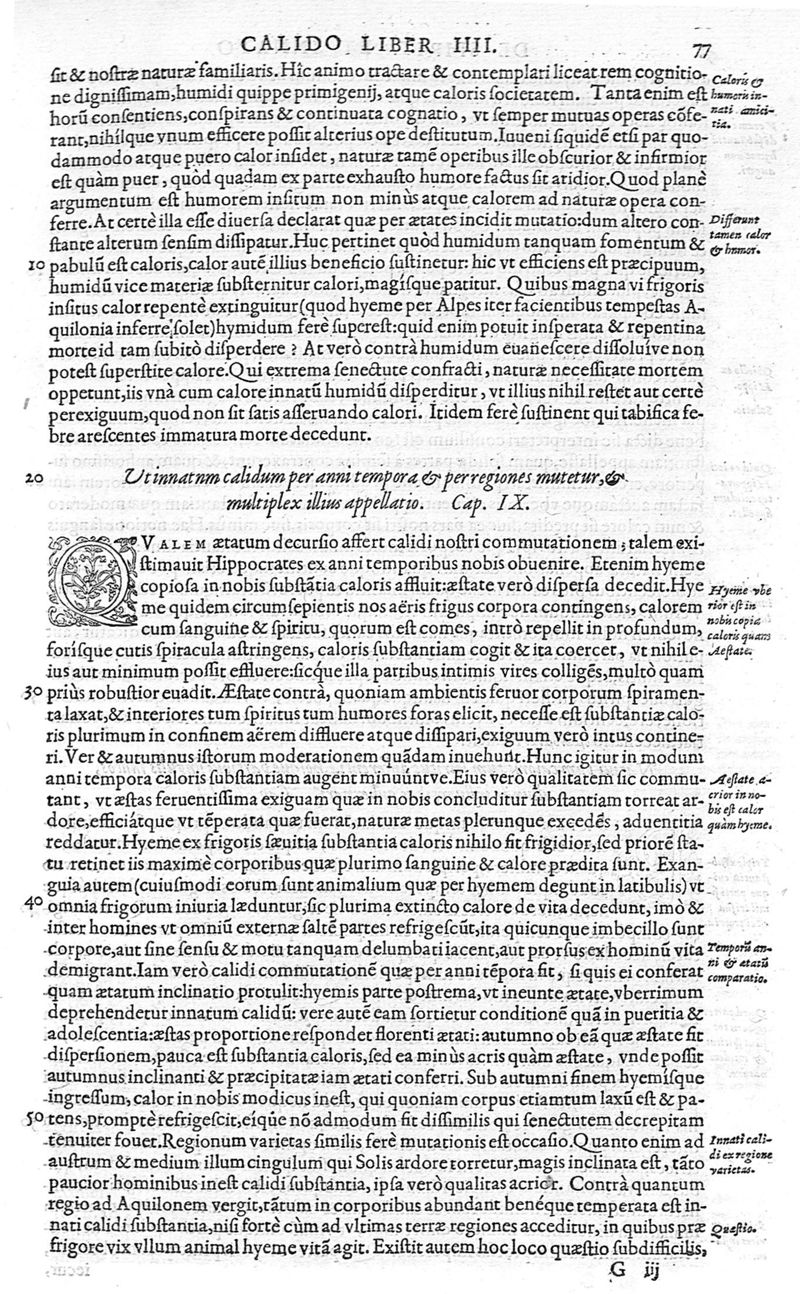 CALIDO LIBER IIII. 77
sit & nostræ naturæ familiaris. Hîc animo tractare & contemplari liceat rem cognitio-
ne dignissimam, humidi quippe primigenij, atque caloris societatem. Tanta enim est
horũ consentiens, conspirans & continuata cognatio, vt semper mutuas operas cõfe-
rant, nihílque vnum efficere possit alterius ope destitutum. Iuueni siquidẽ etsi par quo-
dammodo atque puero calor insidet, naturæ tamẽ operibus ille obscurior & infirmior
est quàm puer, quòd quadam ex parte exhausto humore factus sit aridior. Quod planè
argumentum est humorem insitum non minùs atque calorem ad naturæ opera con-
ferre. At certè illa esse diuersa declarat quæ per ætates incidit mutatio: dum altero con-
stante alterum sensim dissipatur. Huc pertinet quòd humidum tanquam fomentum &
10 pabulũ est caloris, calor autẽ illius beneficio sustinetur: hic vt efficiens est præcipuum,
humidũ vice materiæ substernitur calori, magísque patitur. Quibus magna vi frigoris
insitus calor repentè extinguitur (quod hyeme per Alpes iter facientibus tempestas A-
quilonia inferre solet) hymidum ferè superest: quid enim potuit insperata & repentina
morte id tam subitò disperdere? At verò contrà humidum euanescere dissoluíve non
potest superstite calore. Qui extrema senectute confracti, naturæ necessitate mortem
oppetunt, iis vnà cum calore innatũ humidũ disperditur, vt illius nihil restet aut certè
perexiguum, quod non sit satis asseruando calori. Itidem ferè sustinent qui tabifica fe-
bre arescentes immatura morte decedunt.
Caloris &
humoris in-
nati amici-
tia.
Differunt
tamen calor
& humor.
20 Ut innatum calidum per anni tempora & per regiones mutetur, &
multiplex illius appellatio. Cap. IX.
QVALEM ætatum decursio affert calidi nostri commutationem; talem exi-
stimauit Hippocrates ex anni temporibus nobis obuenire. Etenim hyeme
copiosa in nobis substãtia caloris affluit: æstate verò dispersa decedit. Hye
me quidem circumsepientis nos aëris frigus corpora contingens, calorem
cum sanguine & spiritu, quorum est comes, intrò repellit in profundum,
forísque cutis spiracula astringens, caloris substantiam cogit & ita coercet, vt nihil e-
ius aut minimum possit effluere: sicque illa partibus intimis vires colligẽs, multò quam
30 priùs robustior euadit. Æstate contrà, quoniam ambientis feruor corporum spiramen-
ta laxat, & interiores tum spiritus tum humores foras elicit, necesse est substantiæ calo-
ris plurimum in confinem aërem diffluere atque dissipari, exiguum verò intus contine-
ri. Ver & autumnus istorum moderationem quãdam inuehunt. Hunc igitur in modum
anni tempora caloris substantiam augent minuúntve. Eius verò qualitatem sic commu-
tant, vt æstas feruentissima exiguam quæ in nobis concluditur substantiam torreat ar-
dore, efficiátque vt tẽperata quæ fuerat, naturæ metas plerunque excedẽs, aduentitia
reddatur. Hyeme ex frigoris sæuitia substantia caloris nihilo fit frigidior, sed priorẽ sta-
tu retinet iis maximè corporibus quæ plurimo sanguine & calore prædita sunt. Exan-
guia autem (cuiusmodi eorum sunt animalium quæ per hyemem degunt in latibulis) vt
40 omnia frigorum iniuria læduntur, sic plurima extincto calore de vita decedunt, imò &
inter homines vt omniũ externæ saltẽ partes refrigescũt, ita quicunque imbecillo sunt
corpore, aut sine sensu & motu tanquam delumbati iacent, aut prorsus ex hominũ vita
demigrant. Iam verò calidi commutationẽ quæ per anni tẽpora fit, si quis ei conferat
quam ætatum inclinatio protulit: hyemis parte postrema, vt ineunte ætate, vberrimum
deprehendetur innatum calidũ: vere autẽ eam sortietur conditionẽ quã in pueritia &
adolescentia: æstas proportione respondet florenti ætati: autumno ob eã quæ æstate fit
dispersionem, pauca est substantia caloris, sed ea minùs acris quàm æstate, vnde possit
autumnus inclinanti & præcipitatæ iam ætati conferri. Sub autumni finem hyemísque
ingressum, calor in nobis modicus inest, qui quoniam corpus etiamtum laxũ est & pa-
50 tens, promptè refrigescit, eíque nõ admodum fit dissimilis qui senectutem decrepitam
tenuiter fouet. Regionum varietas similis ferè mutationis est occasio. Quanto enim ad
austrum & medium illum cingulum qui Solis ardore torretur, magis inclinata est, tãto
paucior hominibus inest calidi substantia, ipsa verò qualitas acrior. Contrà quantum
regio ad Aquilonem vergit, tãtum in corporibus abundant benéque temperata est in-
nati calidi substantia, nisi fortè cùm ad vltimas terræ regiones acceditur, in quibus præ
frigore vix vllum animal hyeme vitã agit. Existit autem hoc loco quæstio subdifficilis,
Hyeme vbe
rior est in
nobis copia
caloris quam
Aestate.
Aestate a-
crior in no-
bis est calor
quàm hyeme.
Temporũ an-
ni & ætatũ
comparatio.
Innati cali-
di ex regione
varietas.
Quæstio.
G iij